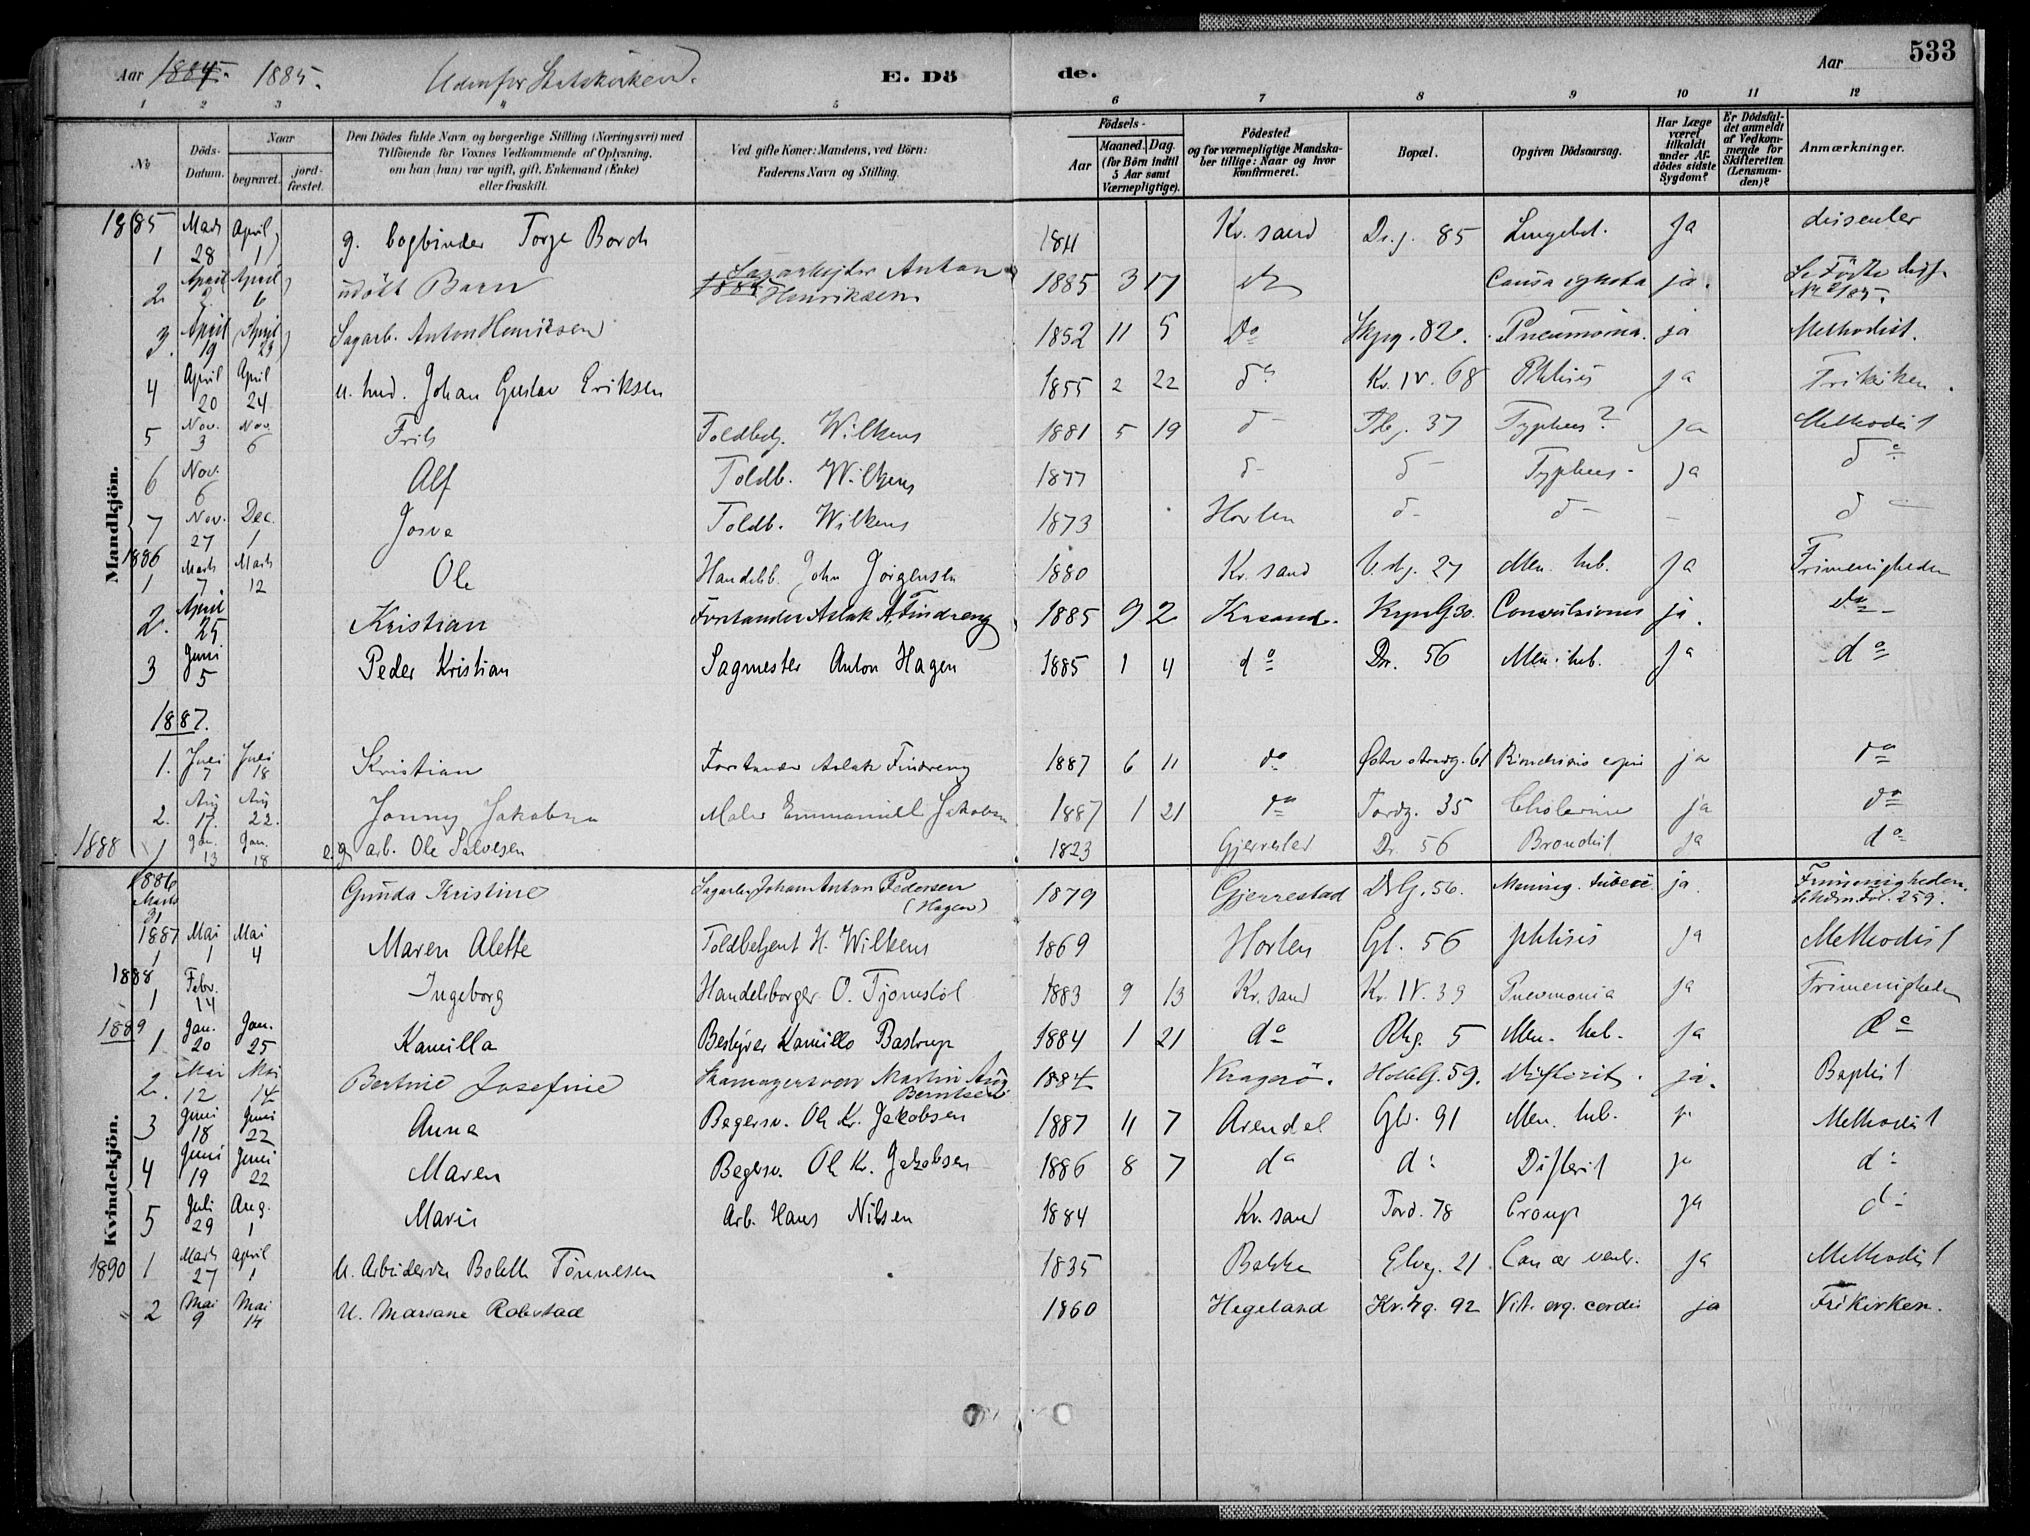 Aar 1884. 1885. Udenfor Statskirken. E. Döde. Aar 533
1 2 3 4 5 6 7 8 9 10 11 12
No
Döds-Datum.
Naar
begravet.
jordfæstet.
Den Dödes fulde Navn og borgerlige Stilling (Næringsvei) med
Tilföiende for Voxnes Vedkommende af Oplysning,
om han (hun) var ugift, gift, Enkemand (Enke)
eller fraskilt.
Ved gifte Koner: Mandens, ved Börn:
Faderens Navn og Stilling.
Födsels-
Aar
Maaned. Dag.
(for Börn indtil
5 Aar samt
Værnepligtige).
Födested
og for værnepligtige Mandskaber tillige: Naar og hvor
konfirmeret.
Bopæl.
Opgiven Dödsaarsag.
Har Læge
været
tilkaldt
under Afdödes sidste
Sygdom?
Er Dödsfaldet anmeldt
af Vedkommende for
Skifteretten
(Lensmanden)?
Anmærkninger.
Mandkjön.
1885
1 Marts 28 April 1 g. bogbinder Torge Borch 1811 Kr.sand Dr.g. 85 Lungebet. ja dissenter
2 April 2 April 6 udöbt Barn Sagarbejder Anton Henriksen 1885 3 17 do Causa ignota ja. Se Födte
3. April 19 April 23 Sagarb. Anton Henriksen 1852 11 5 do 82. Pneumonia. ja Methodist.
4 April 20 April 24 u. hmd. Johan Gustav Eriksen 1855 2 22 do Kr. IV. 68 Phtisis ja Frikirken.
5 Nov. 3 Nov. 6 Frits Toldbetj. Wilkens 1881 5 19 d- 37 Typhus? ja Methodist
6 Nov. 6 Alf Toldb. Wilkens 1877 d- d- Typhus - ja do
7 Nov. 27 Dec. 1 Josva Toldb. Wilkens 1873 Horten d- d- - d-
1886
1 Marts 7 Marts 12 Ole Handelsb. John Jörgensen 1880 Kr.sand V.stg. 27 Men. tub. ja Frimenigheden
2. April 25 Kristian Forstander Aslak A. Findreng 1885 9 2 Krsand. 30. Convulsiones ja. do
3 Juni 5 Peder Kristian Sagmester Anton Hagen 1885 1 4 do Dr. 56 Men. tub. ja do
1887.
1. Juli 7 Juli 18 Kristian Forstander Aslak Findreng 1887 6 11 do Østre strandg. 61 ja do
2. Aug 17. Aug 22. Jonny Jakobsen Maler Emmanuell Jakobsen 1887 1 21 do Tordg. 35 Cholerine ja do
1888 1 Jan. 13 Jan. 18 e.g. arb. Ole Salvesen 1823 Gjerrestad Dr. 56 Bronchit ja do
Kvindekjön.
1886
Marts 31 Gunda Kristine Sagarb. Johan Anton Pedersen (Hagen) 1879 Gjerrestad Dr.G. 56. Mening. tuberc ja. Frimenigheden. 259.
1887
1 Mai 1 Mai 4 Maren Alette Toldbetjent H. Wilkens 1869 Horten Gl. 56 phtisis ja Methodist
1888
1 Febr. 14 Ingeborg Handelsborger O. Tjomstöl 1883 9 13 Kr.sand Kr. IV. 39 Pneumonia ja Frimenigheden
1889
1 Jan. 20 Jan. 25 Kamilla Bestyrer Kamillo Bastrup 1884 1 21 do Rhg. 5 Men. tub. ja do
2. Mai 12 Mai 14 Bertine Josefine Skomagersvend Martin Aug. Berntsen 1884 Kragerö. HolbG. 59. Difterit. ja. Baptist
3 Juni 18 Juni 22 Anna Bagersv. Ole Kr. Jakobsen 1887 11 7 Arendal Glv. 91 Men. tub. ja Methodist
4 Juni 19 Juni 22 Maren Bagersv. Ole Kr. Jakobsen 1886 8 7 do do Difterit ja do
5 Juli 29 Aug. 1 Marie Arb. Hans Nilsen 1884 Kr.sand Tord. 78 Croup ja do
1890 1 Marts 27 April 1 U. Arbiderske Bolette Tönnesen 1835 Bakke Elveg. 21. Cancer ventr. ja Methodist
2 Mai 9 Mai 14 U. Mariane Robstad 1860 Hegeland 92 Vit. org. cordis ja Frikirken.